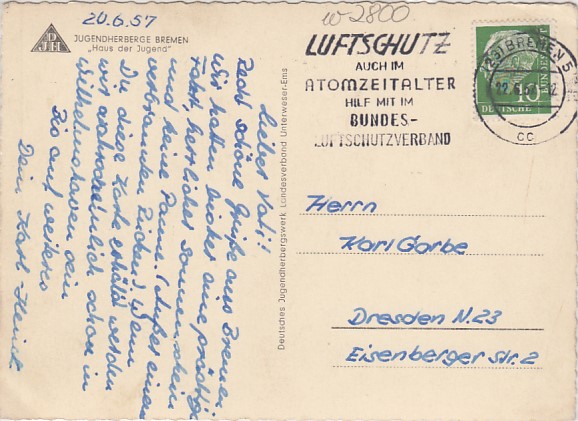 20.6.57
w 2800
DJH
JUGENDHERBERGE BREMEN
„Haus der Jugend"
Lieber Vati!
Recht schöne Grüße aus Bremen
Wir hatten bisher eine prächtige
Fahrt, herrlicher Sonnenschein
und keine Panne. (außer einen
verbrannten Rücken) Wenn
Du diese Karte erhältst werden
wir wahrscheinlich schon in
Wilhelmshaven sein
Bis auf weiteres
Dein Karl-Heinz
Deutsches Jugendherbergswerk Landesverband Unterweser-Ems
LUFTSCHUTZ
AUCH IM
ATOMZEITALTER
HILF MIT IM
BUNDES-
LUFTSCHUTZVERBAND
(23) BREMEN 5
22.6.57
cc
10
DEUTSCHE
BUNDESPOST
Herrn
Karl Garbe
Dresden N.23
Eisenberger Str. 2